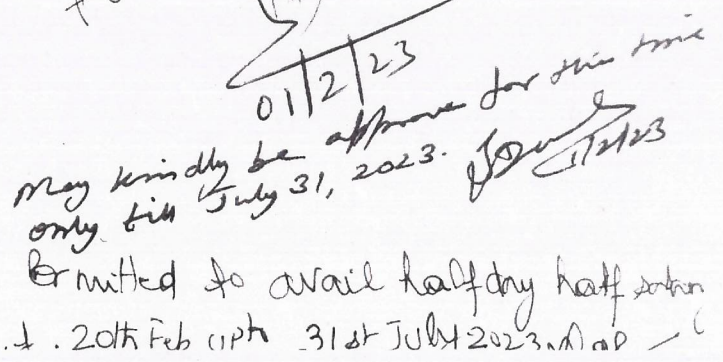 01/2/23
May kindly be approve for this time
only till July 31, 2023.
1/2/23
Permitted to avail halfday half
20th Feb upto 31st July 2023.